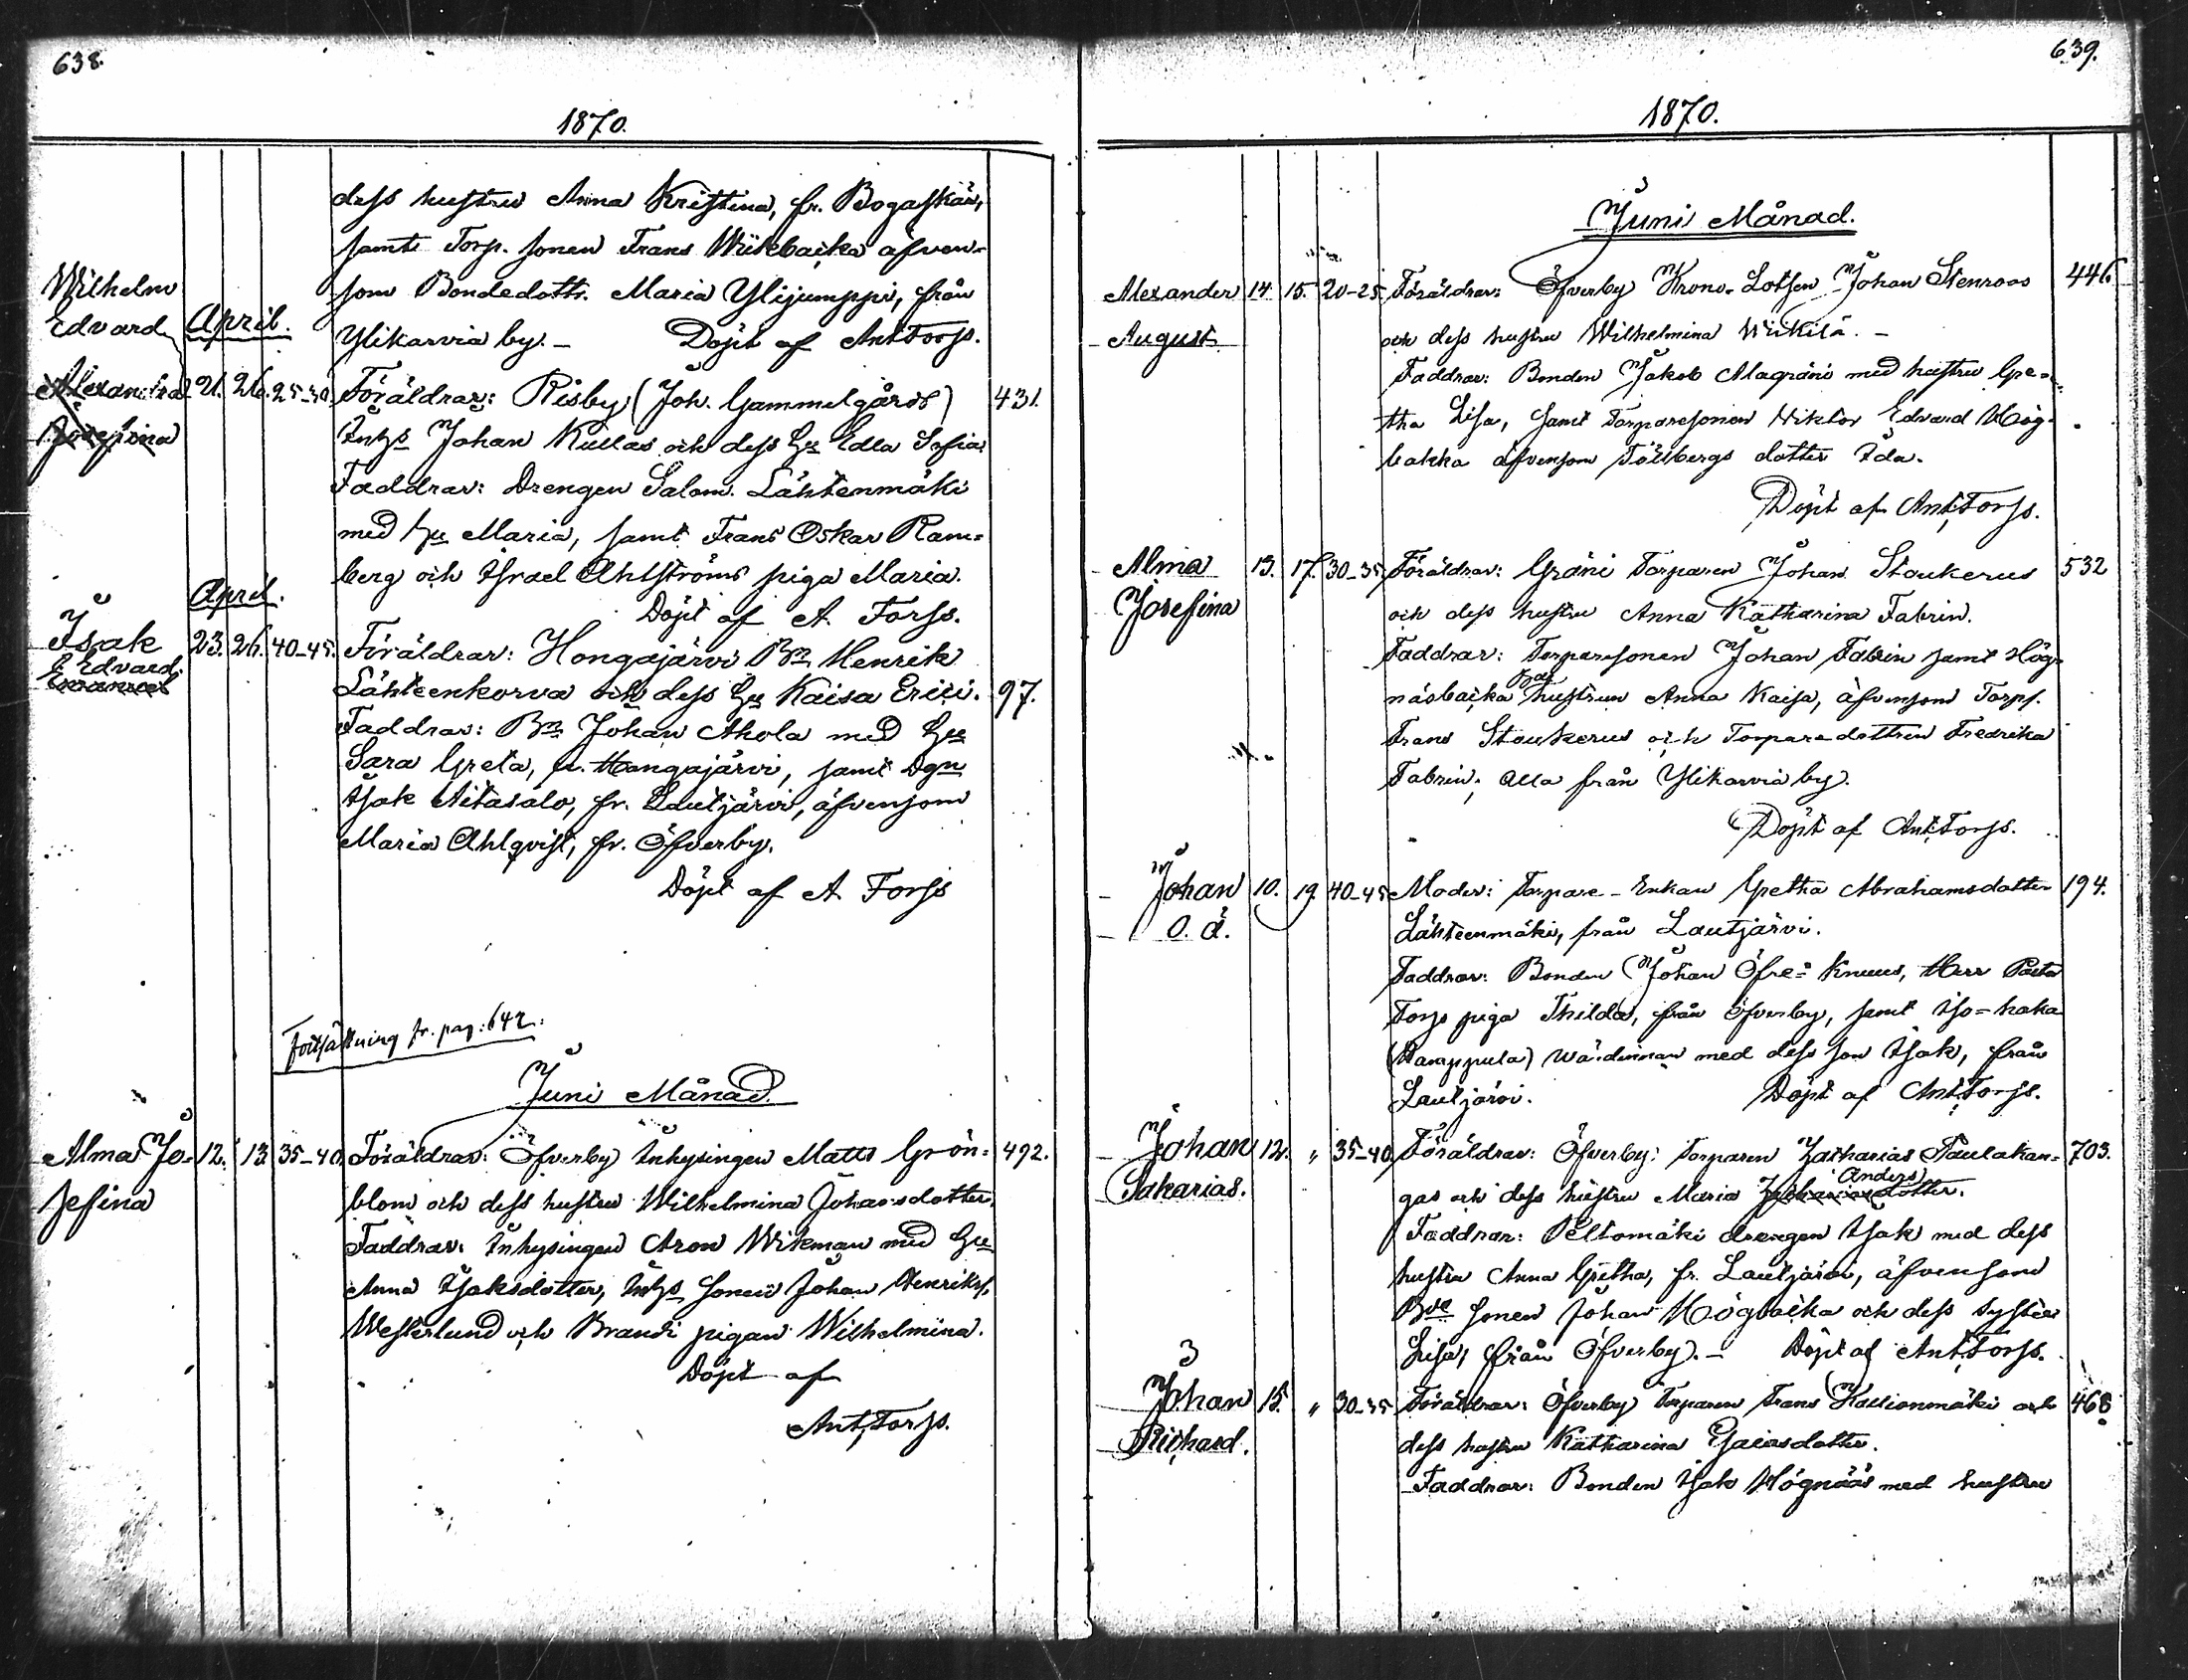 638.
1870.
dess hustru Anna Kristina, fr. Bogaskär,
samt Torp. sonen Frans Wiikbacka äfven-
som Bondedottr. Maria Ylijumppi, från
Ylikarvia by. – Döpt af Ant Forss.
Wilhelm
Edvard
April.
Alexandra 21. 26. 25-30 Föräldrar: Risby (Joh. Gammelgårds) 431.
Josefina
Inhs Johan Kullas och dess Hu Edla Sofia
Faddrar: Drengen Salom. Lähtenmäki
med Hu Maria, samt Frans Oskar Ram-
berg och Israel Ahlströms piga Maria.
Döpt af A. Forss.
April.
Isak 23. 26. 40-45. Föräldrar: Hongajärvi Bn Henrik
Edvard
Lähteenkorva och dess Hu Kaisa Erici. 97.
Faddrar: Bn Johan Ahola med Hu
Sara Greta, fr. Hongajärvi, samt Dgn
Isak Aitasalo, fr. Lautjärvi, äfvensom
Maria Ahlqvist, fr. Öfverby.
Döpt af A Forss
Fortsättning fr. pag: 642.
Juni Månad.
Alma Jo- 12. 13. 35-40. Föräldrar: Öfverby Inhysingen Matts Grön- 492.
sefina
blom och dess hustru Wilhelmina Johansdotter.
Faddrar: Inhysingen Aron Wikman med Hu
Anna Isaksdotter, Inhs sonen Johan Henrikss.
Westerlund och Brandi pigan Wilhelmina.
Döpt af
Ant, Forss.
639.
1870.
Juni Månad.
Alexander 14. 15. 20-25 Föräldrar: Öfverby Krono-Lotsen Johan Stenroos 446
August
och dess hustru Wilhelmina Wiikilä. –
Faddrar: Bonden Jakob Alagräni med hustru Gre-
tha Lisa, samt Torparesonen Wiktor Edvard Hög-
backa äfvensom Töllbergs dotter Ida.
Döpt af Ant, Forss.
Alma 13. 17. 30-35 Föräldrar: Gräni Torparen Johan Stoukerus 532
Josefina
och dess hustru Anna Katharina Fabrin.
Faddrar: Torparesonen Johan Fabrin samt Hög-
näsbacka hustrun Anna Kaisa, äfvensom Torps.
Frans Stoukerus och Torparedottren Fredrika
Fabrin, alla från Ylikarvia by.
Döpt af Ant, Forss.
Johan 10. 19. 40-45 Moder: Torpare-Enkan Gretha Abrahamsdotter 194.
O. ä.
Lähteenmäki, från Lautjärvi.
Faddrar: Bonden Johan Öfre-Knuus, Herr Pastor
Forss piga Thilda, från Öfverby, samt Iso-haka
(Kamppula) wärdinnan med dess son Isak, från
Lautjärvi. Döpt af Ant, Forss.
Johan 12. " 35-40. Föräldrar: Öfverby: Torparen Zacharias Paulakan- 703.
Sakarias.
gas och dess hustru Maria Anders dotter.
Faddrar: Peltomäki drengen Isak med dess
hustru Anna Gretha, fr. Lautjärvi, äfvensom
Bde sonen Johan Högbacka och dess syster
Lisa, från Öfverby. – Döpt af Ant, Forss.
Johan 15. " 30-35 Föräldrar: Öfverby Torparen Frans Kallionmäki och 468
Richard.
dess hustru Katharina Esaiasdotter.
Faddrar: Bonden Isak Högnääs med hustru